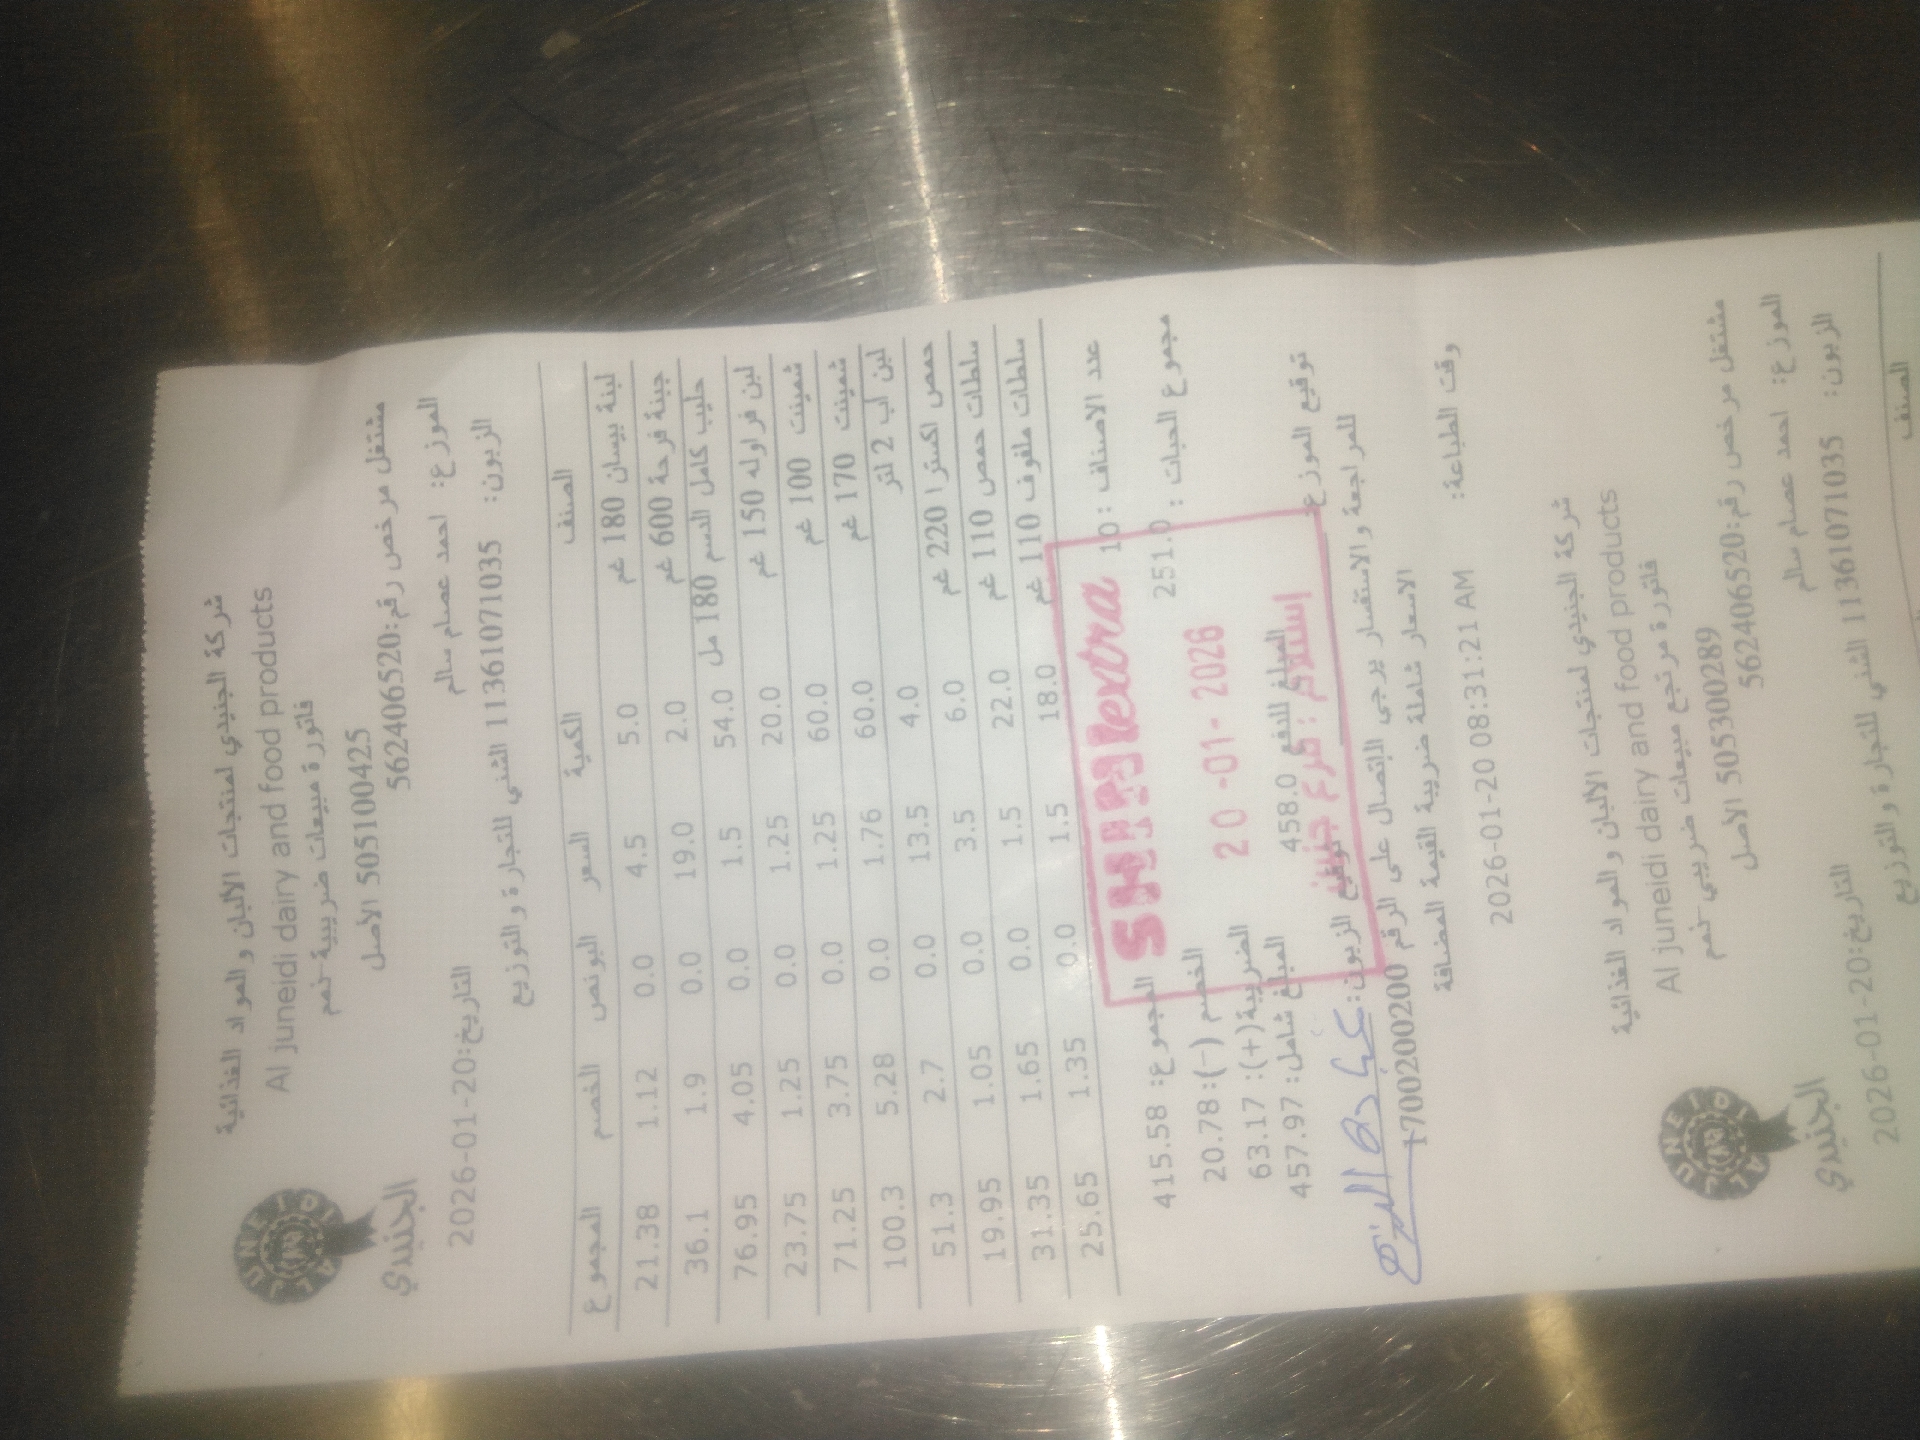 شركة الجنيدي لمنتجات الالبان و المواد الغذائية
Al juneidi dairy and food products
فاتورة مبيعات ضريبية -نعم
505100425 الاصل
مشتغل مرخص رقم:562406520
AL JUNEIDI
الجنيدي
الموزع: احمد عصام سالم
التاريخ:20-01-2026
الزبون: 1136107103​5 الشني للتجارة و التوزيع
الصنف الكمية السعر البونص الخصم المجموع
لبنة بيسان 180 غم 5.0 4.5 0.0 1.12 21.38
جبنة فرحة 600 غم 2.0 19.0 0.0 1.9 36.1
حليب كامل الدسم 180 مل 54.0 1.5 0.0 4.05 76.95
لبن فراوله 150 غم 20.0 1.25 0.0 1.25 23.75
شمينت 100 غم 60.0 1.25 0.0 3.75 71.25
شمينت 170 غم 60.0 1.76 0.0 5.28 100.3
لبن اب 2 لتر 4.0 13.5 0.0 2.7 51.3
حمص اكسترا 220 غم 6.0 3.5 0.0 1.05 19.95
سلطات حمص 110 غم 22.0 1.5 0.0 1.65 31.35
سلطات ملفوف 110 غم 18.0 1.5 0.0 1.35 25.65
عدد الاصناف : 10
المجموع: 415.58
مجموع الحبات : 251.0
الخصم (-): 20.78
الضريبة(+): 63.17
المبلغ للدفع 458.0
المبلغ شامل: 457.97
extra
20 -01- 2026
إستلام : فرع جنين
توقيع الموزع
توقيع الزبون:
للمراجعة و الاستفسار يرجى الإتصال على الرقم 1700200200
الاسعار شاملة ضريبة القيمة المضافة
وقت الطباعة: 2026-01-20 08:31:21 AM
شركة الجنيدي لمنتجات الالبان و المواد الغذائية
Al juneidi dairy and food products
فاتورة مرتجع مبيعات ضريبي -نعم
505300289 الاصل
مشتغل مرخص رقم:562406520
AL JUNEIDI
الجنيدي
الموزع: احمد عصام سالم
التاريخ:20-01-2026
الزبون: 11361071035 الشني للتجارة و التوزيع
الصنف